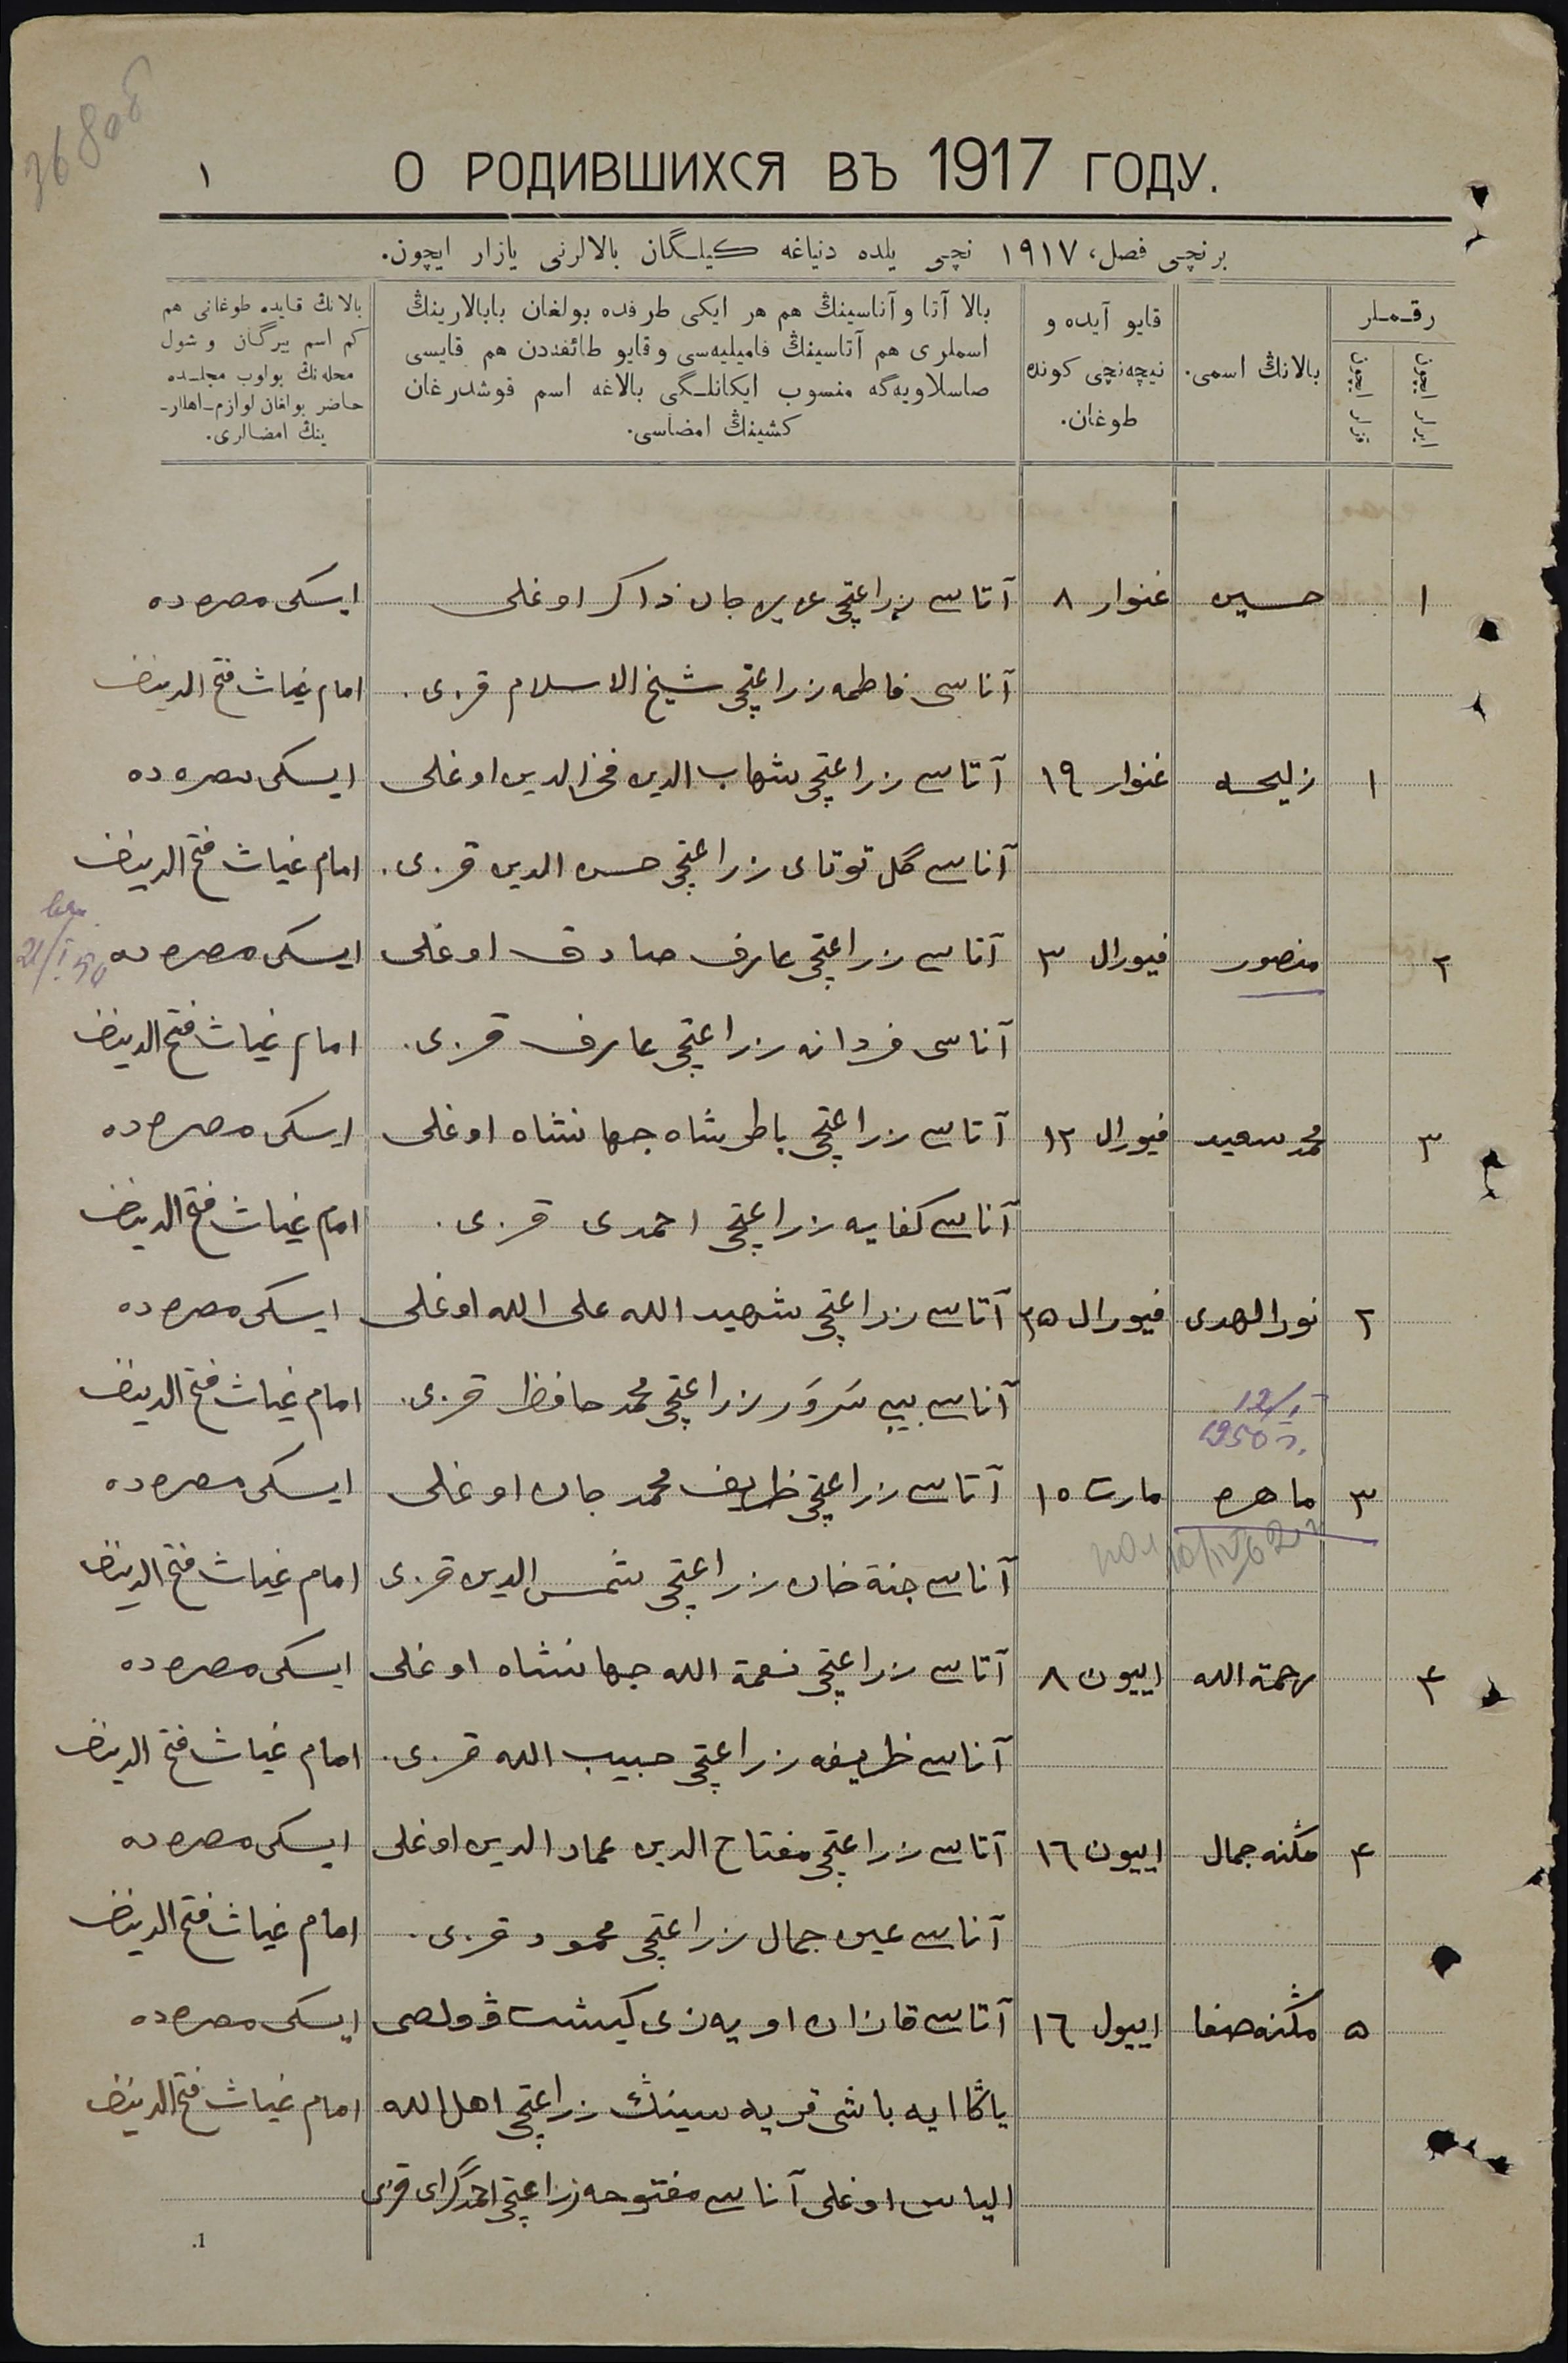 О РОДИВШИХСЯ ВЪ 1917 ГОДУ.
١
برنچی فصل، ١٩١٧ نچی يلده دنياغه كيلـگان بالالرنی يازار ايچون.
رقـملر
ايرلر ايچون
قزلر ايچون
بالانڭ اسمی.
قايو آيده و نيچه‌نچی كونده طوغان.
بالا آتا و آناسينڭ هم هر ايكی طرفده بولغان بابالارينڭ
اسملری هم آتاسينڭ فاميليه‌سی و قايو طائفه‌دن هم قايسی
صاسلاويه‌گه منسوب ايكانلـگی بالاغه اسم قوشدرغان
كشينڭ امضاسی.
بالانڭ قـايده طوغانی هم
كم اسم بيرگـان و شول
محله‌نڭ بولوب مجلـده
حاضر بولغان لوازم-اهللر-
ينڭ امضـالری.
١ حسين غنوار ٨ آتاسی زراعتچی عزيزجان ذاكر اوغلی ايسكی مصره ده
آناسی فاطمه زراعتچی شيخ الاسلام قزی. امام غياث فتح الدينف
١ زليحه غنوار ١٩ آتاسی زراعتچی شهاب الدين فخرالدين اوغلی ايسكی مصره ده
آناسی گل توتای زراعتچی حسن الدين قزی. امام غياث فتح الدينف
٢ منصور فيورال ٣ آتاسی زراعتچی عارف صادق اوغلی ايسكی مصره ده
21/I 54
آناسی فردانه زراعتچی عارف قزی. امام غياث فتح الدينف
٣ محمد سعيد فيورال ١٢ آتاسی زراعتچی باطرشاه جهانشاه اوغلی ايسكی مصره ده
آناسی كفايه زراعتچی احمدی قزی. امام غياث فتح الدينف
٢ نورالهدی فيورال ٢٥ آتاسی زراعتچی شهيد الله علی الله اوغلی ايسكی مصره ده
آناسی بيبی سَروَر زراعتچی محمد حافظ قزی. امام غياث فتح الدينف
12/I
1950 г.
٣ ماهره مارت ١٥ آتاسی زراعتچی ظريف محمد جان اوغلی ايسكی مصره ده
آناسی جنة خان زراعتچی شمس الدين قزی امام غياث فتح الدينف
٤ رحمة الله اييون ٨ آتاسی زراعتچی نعمة الله جهانشاه اوغلی ايسكی مصره ده
آناسی ظريفه زراعتچی حبيب الله قزی. امام غياث فتح الدينف
٤ مڭنه جمال اييون ١٦ آتاسی زراعتچی مفتاح الدين عماد الدين اوغلی ايسكی مصره ده
آناسی عين جمال زراعتچی محمود قزی. امام غياث فتح الدينف
٥ مڭنه صفا اييول ١٦ آتاسی قازان اويه‌زی كيشت ڤولصی ايسكی مصره ده
ياڭا ايه باشی قريه سينڭ زراعتچی اهل الله امام غياث فتح الدينف
الياس اوغلی آناسی مفتوحه زراعتچی احمدگرای قزی
1.